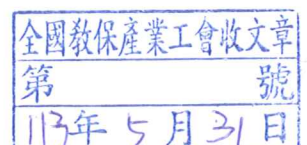 全國教保產業工會收文章
第 號
113年5月31日